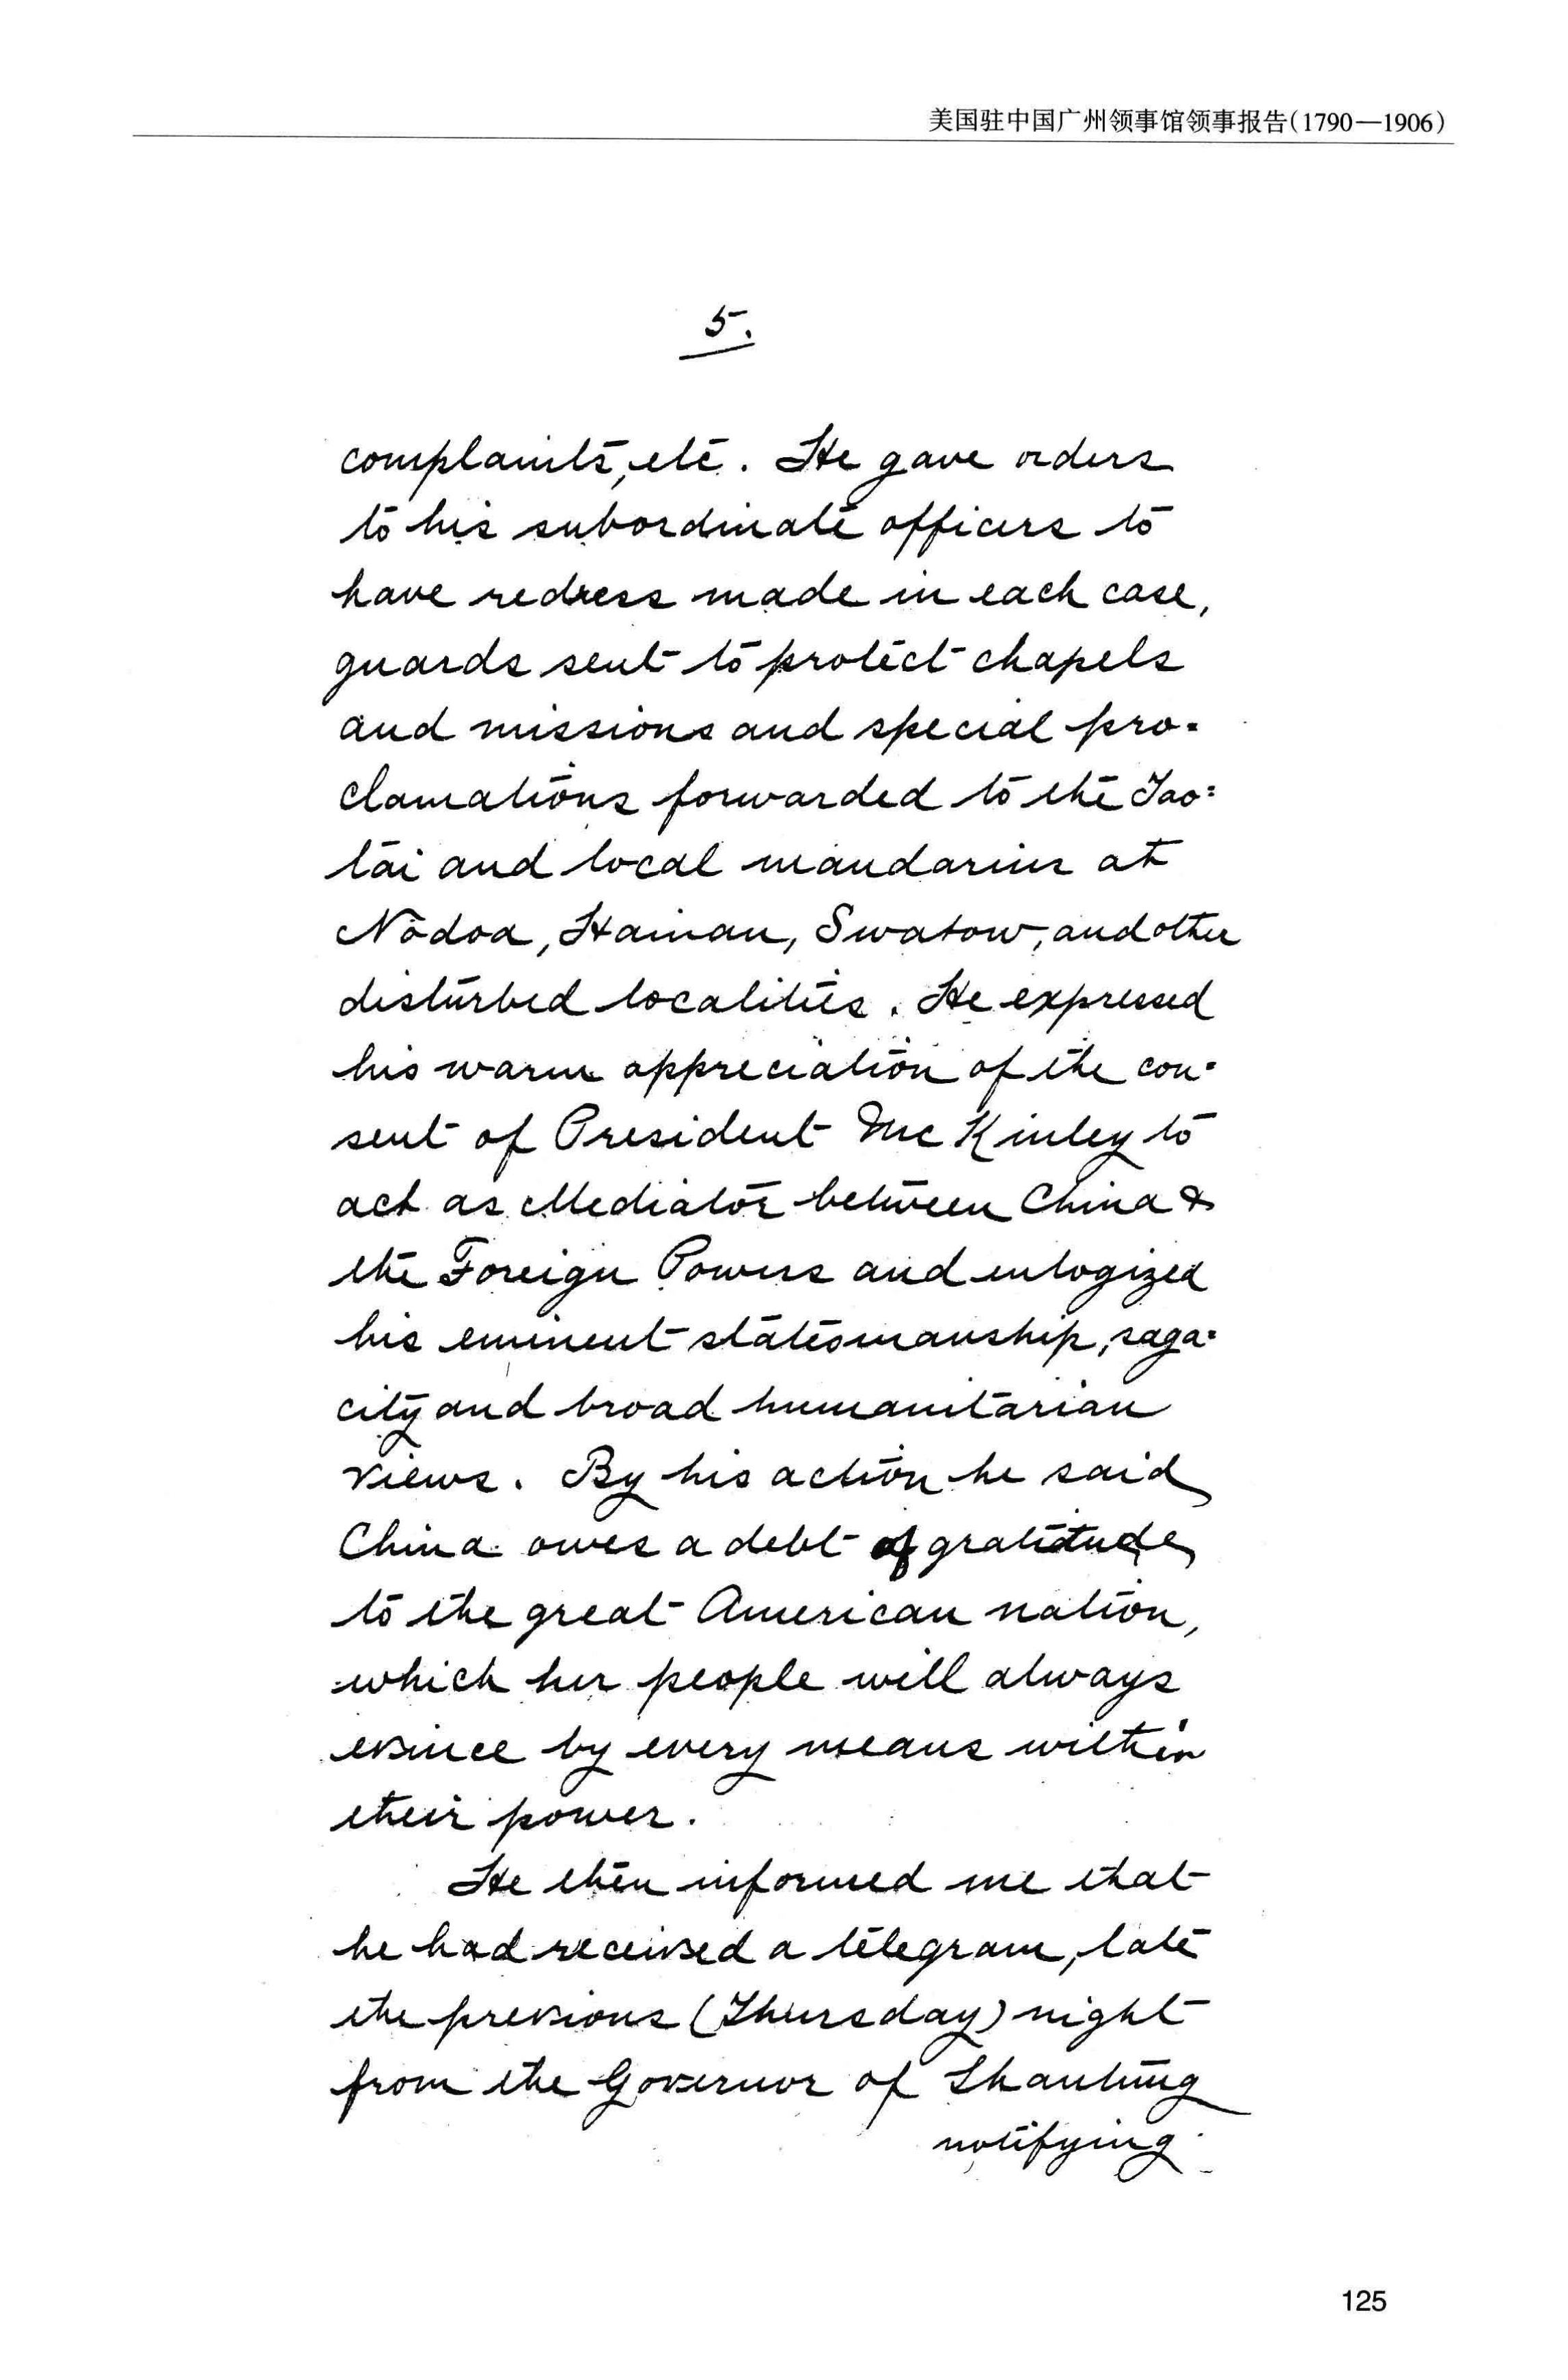 美国驻中国广州领事馆领事报告(1790—1906)
5.
complaints, etc. He gave orders
to his subordinate officers to
have redress made in each case,
guards sent to protect chapels
and missions and special pro-
clamations forwarded to the Tao=
tai and local mandarins at
Nodoa, Hainan, Swatow, and other
disturbed localities. He expressed
his warm appreciation of the con-
sent of President McKinley to
act as Mediator between China &
the Foreign Powers and eulogized
his eminent statesmanship, saga=
city and broad humanitarian
views. By his action he said
China owes a debt of gratitude
to the great American nation,
which her people will always
evince by every means within
their power.
He then informed me that
he had received a telegram, late
the previous (Thursday) night
from the Governor of Shantung
notifying
125